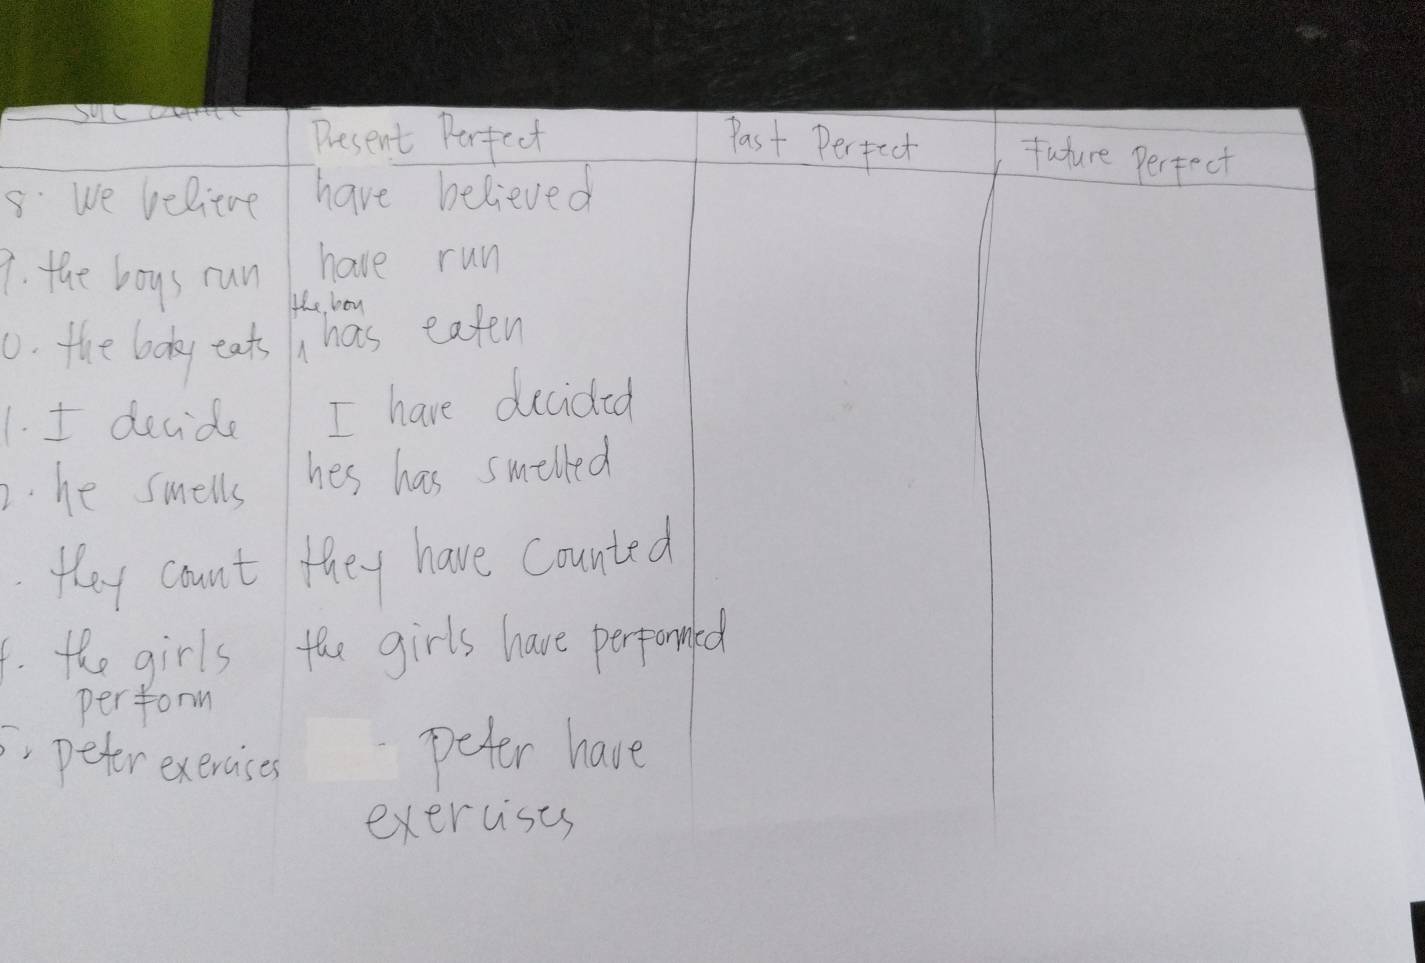 Present Perfect Past Perfect Future Perfect
8. We believe have believed
9. the boys run have run
the boy
0. the baby eats has eaten
1. I decide I have decided
2. he smells hes has smelled
. they count they have counted
. the girls the girls have performed
perform
5. peter exercises peter have
exercises